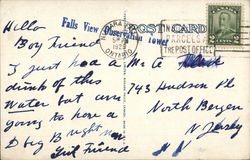 Hello
Boy Friend
I just had a
drink of this
Water but am
going to have a
big
Girl Friend
Falls View Observation Tower
POST CARD
ONTARIO
PARCELS
THE POST OFFICE
Mr A
743 Hudson Pl
North Bergen
N Jersey